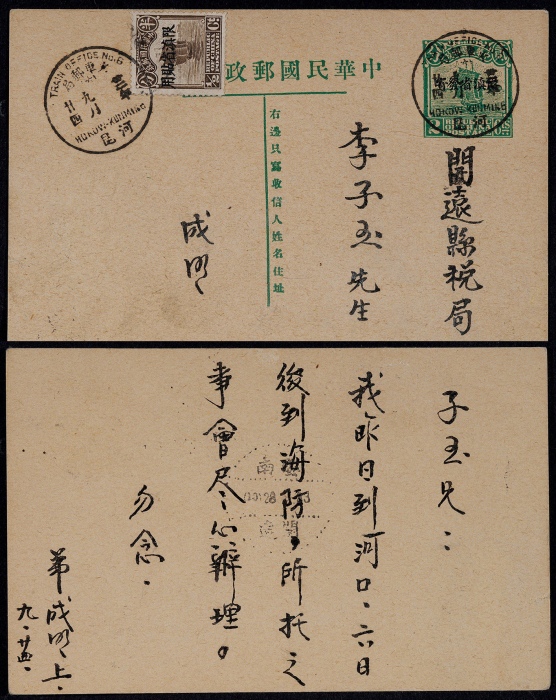 中華民國郵政
限滇省貼用
TRAIN OFFICE No.6
HOKOW-KUNMING
河昆
九月
廿四
右邊只寫收信人姓名住址
開遠縣稅局
李子玉先生
成明
子玉兄：
我昨日到河口、六日
後到海防，所托之
事會尽心辦理。
勿念。
弟成明上.
九.廿四.